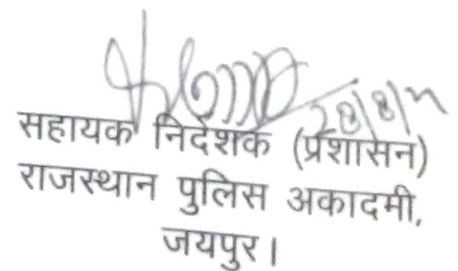 28/8/
सहायक निदेशक (प्रशासन)
राजस्थान पुलिस अकादमी,
जयपुर।